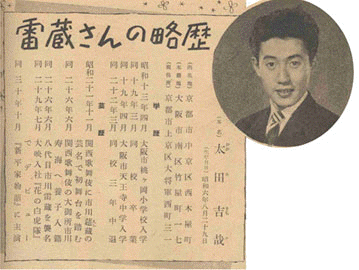 雷蔵さんの略歴
（本名） 太田吉哉
（生年月日）昭和六年八月二十九日
（出生地） 京都市中京区西木屋町
（本籍地） 大阪市南区竹屋町一七
（現住所） 京都市上京区大将軍西町三一
学歴
昭和十三年四月 大阪市桃ヶ岡小学校入学
同 十九年三月 同校卒業
同 十九年四月 大阪市天王寺中学入学
同 二十二年三月 同校三年中退
業歴
昭和二十一年十一月 関西歌舞伎に市川莚蔵の
芸名で初舞台を踏む
同 二十六年六月 関西歌舞伎の大御所市川
寿海へ養子入籍
同 二十六年六月 八代目市川雷蔵を襲名
同 二十九年七月 大映入社「花の白虎隊」
同 三十年十月 『新平家物語』に主演